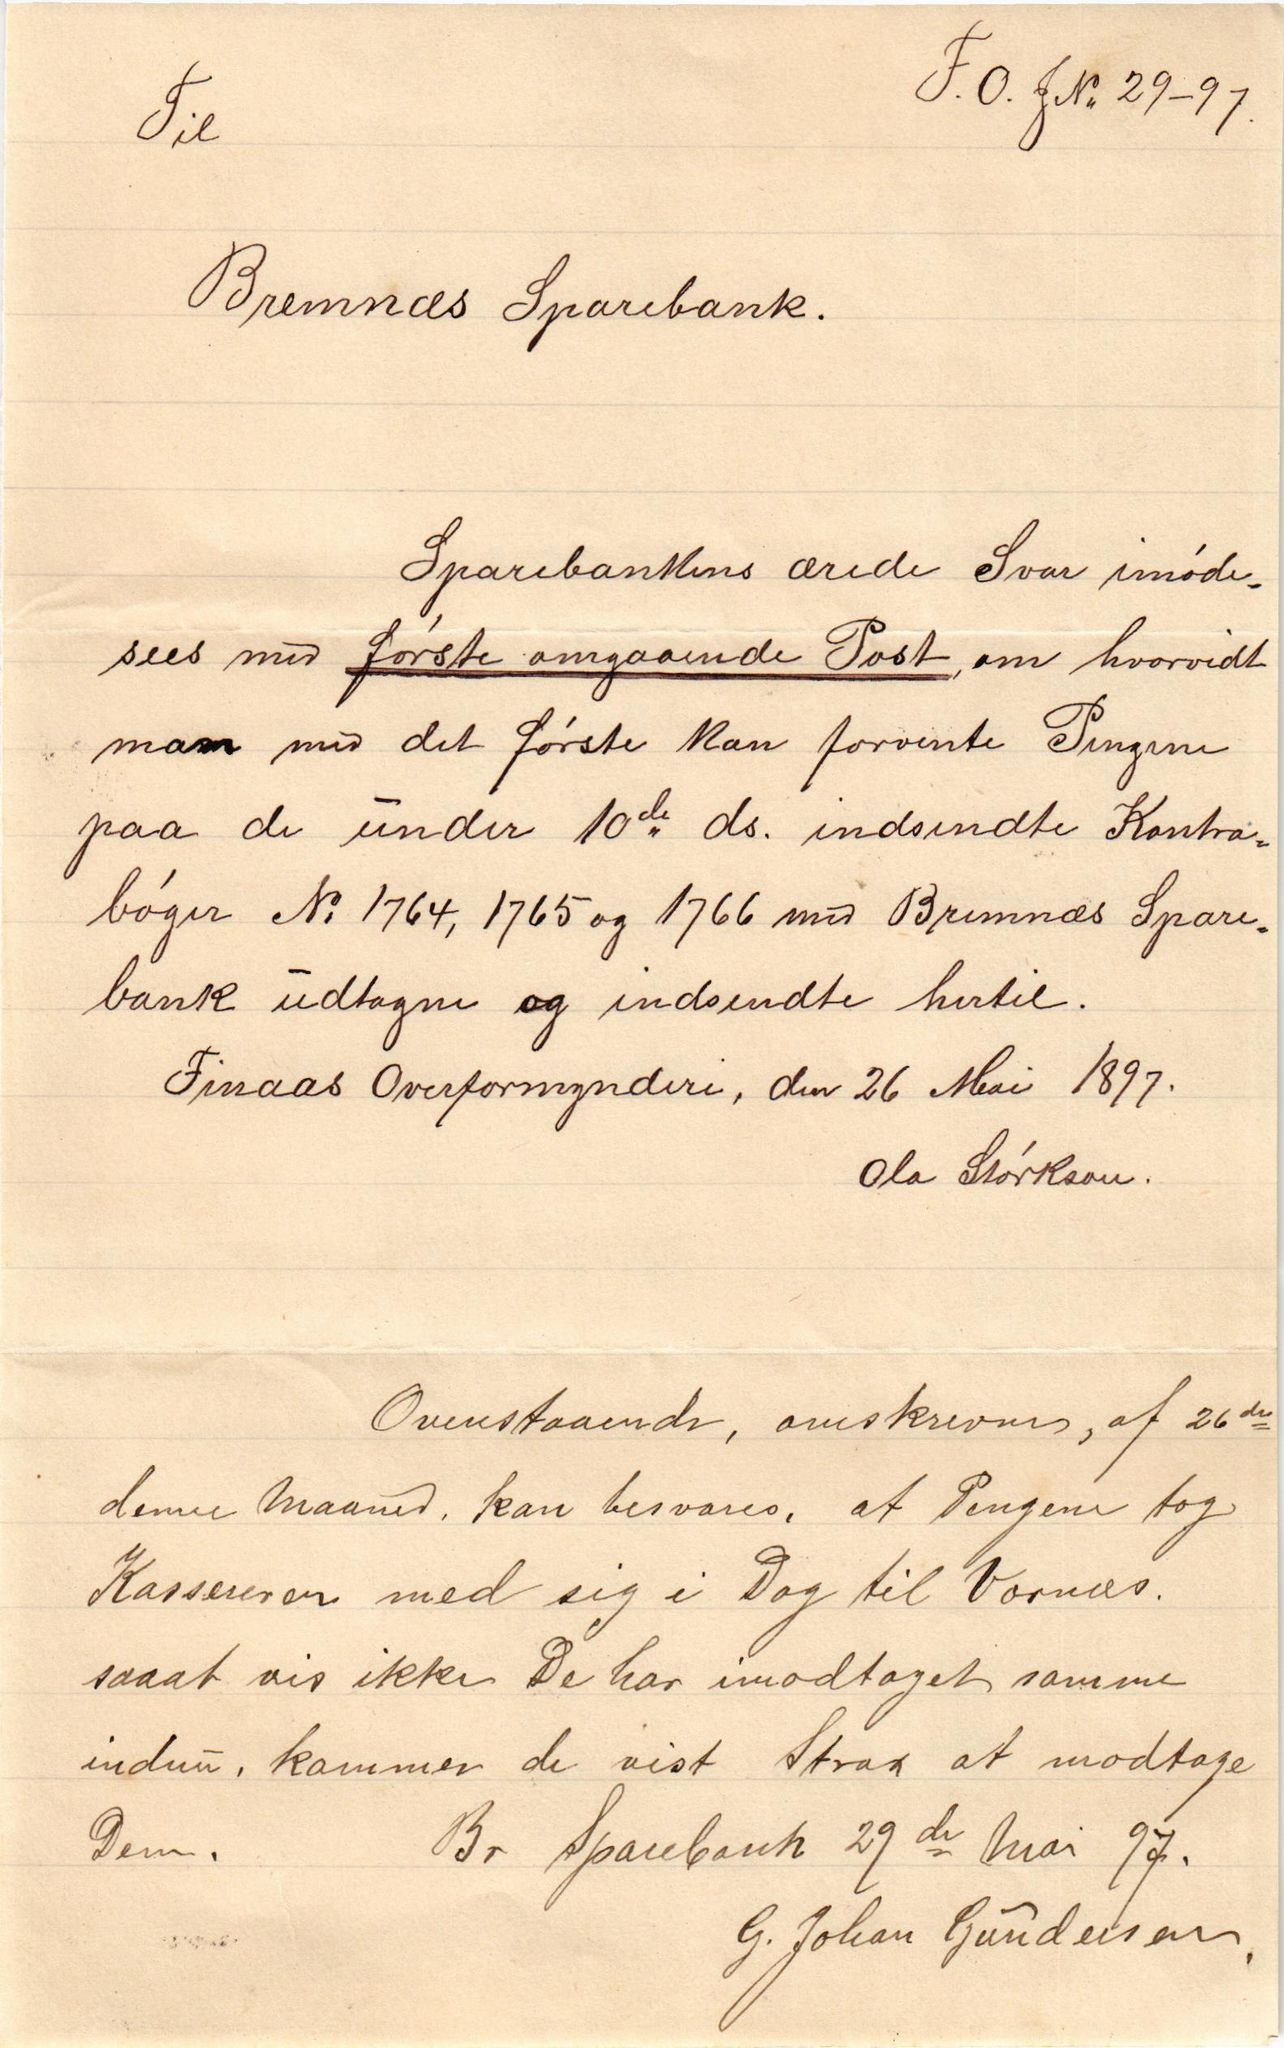 F. O. J No. 29-97.
Til
Bremnæs Sparebank.
Sparebankens ærede Svar imóde-
sees med fórste omgaaende Post, om hvorvidt
man med det fórste kan forvente Pengene
paa de under 10de ds. indsendte Kontra-
bóger No 1764, 1765 og 1766 med Bremnæs Spare-
bank udtagne og indsendte hertil.
Finaas Overformynderi, den 26 Mai 1897.
Ola Stórkson.
Ovenstaaende, omskrevne, af 26de
denne Maaned, kan besvares, at Pengene tog
Kassereren med sig i Dag til Vornæs.
saaat vis ikke De har imodtaget samme
indnu, kommer de vist Strax at modtage
Dem. Br Sparebank 29de Mai 97.
G. Johan Gundersen.